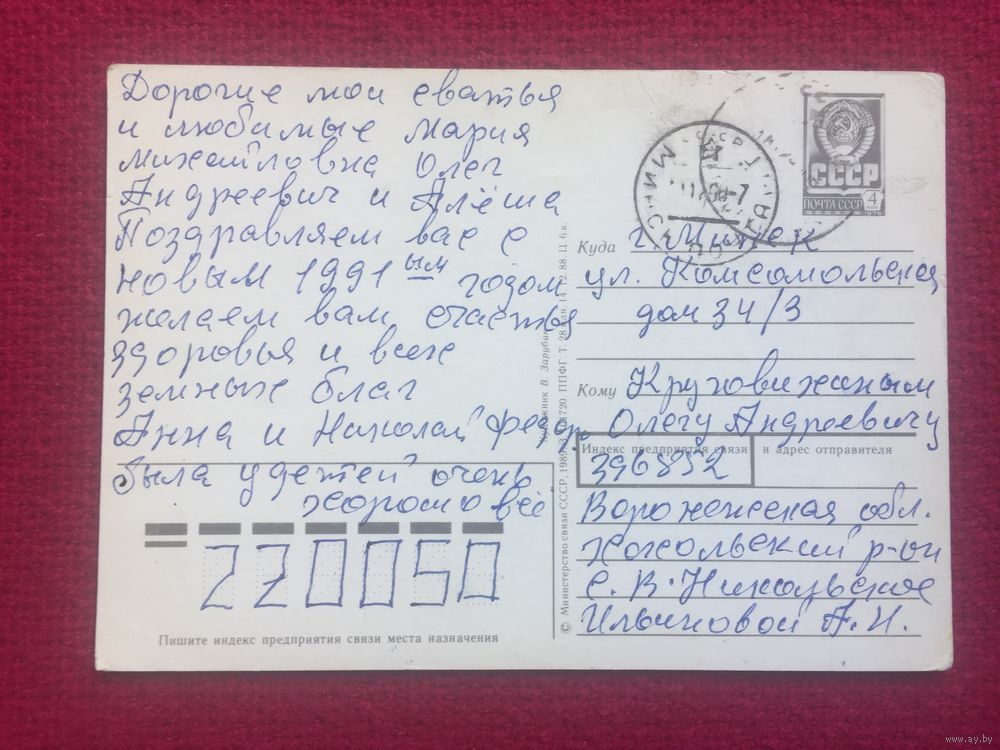 Дорогие мои сватья
и любимые Мария
Михайловна Олег
Андреевич и Алёша
Поздравляем вас с
новым 1991ым годом
желаем вам счастья
здоровья и всех
земных благ
Анна и Николай Федор
была у детей очень
хорошо всё
220050
Пишите индекс предприятия связи места назначения
© Министерство связи СССР, 1989. З. 114720. ППФГ. Т. 28 млн. 14.12.88. Ц. 6 к.
Художник В. Зарубин
СССР
ПОЧТА СССР
4
1976
МИНСК
Куда г. Минск
ул. Комсомольская
дом 34/3
Кому Круковижиным
Олегу Андреевичу
Индекс предприятия связи и адрес отправителя
396832
Воронежская обл.
Хохольский р-он
с. В-Никольское
Ильиновой А.И.
www.ay.by